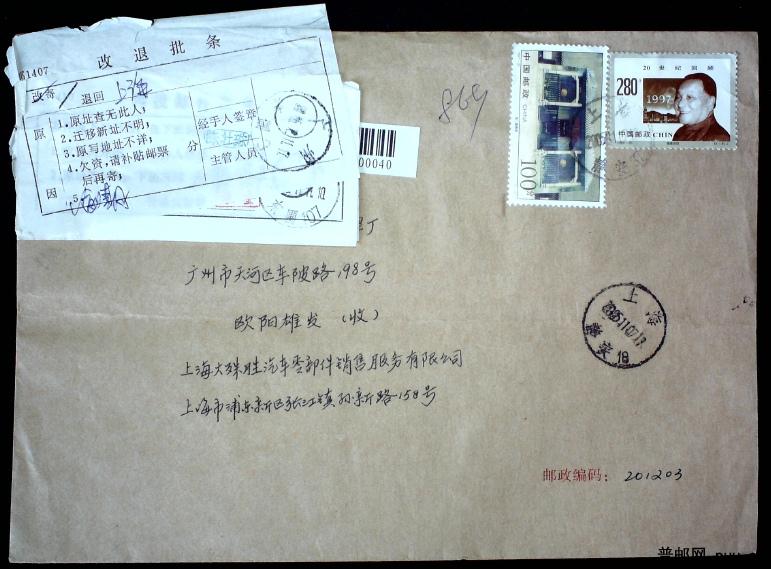 改退批条
邮1407
改寄 退回 上海
原因
1.原址查无此人;
2.迁移新址不明;
3.原写地址不详;
4.欠资,请补贴邮票
后再寄;
5.
经手人签章
主管人员
分
00040
100分
中国邮政
CHINA
20世纪回顾
280分
1997
中国邮政 CHINA
广州市天河区车陂路198号
欧阳雄发(收)
上海大殊胜汽车零部件销售服务有限公司
上海市浦东新区张江镇孙新路158号
上海
2005.11.07.17
18
邮政编码: 201203
普邮网